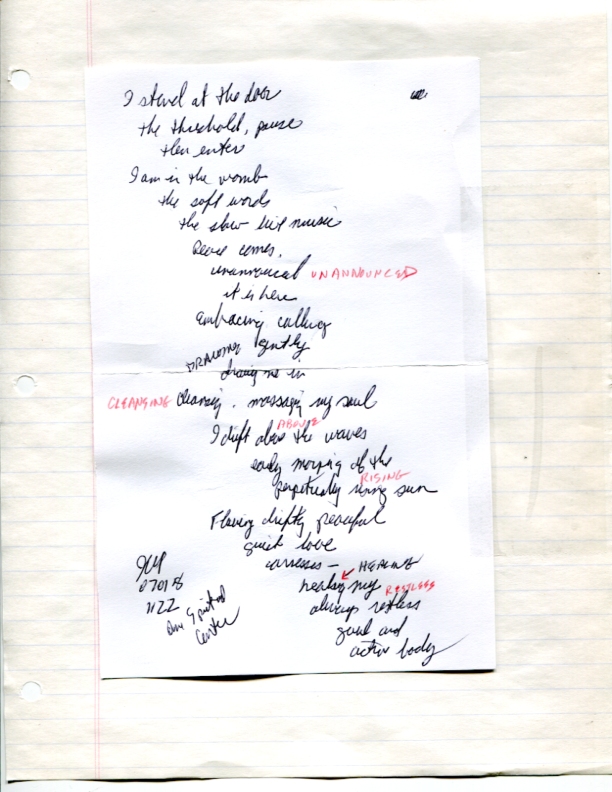 I stand at the door
the threshold, pause
then enter
I am in the womb
the soft words
the slow music
Peace comes,
unannounced UNANNOUNCED
it is here
embracing calling
gently
DRAWING
drawing me in
CLEANSING cleansing, massaging my soul
ABOVE
I drift above the waves
early morning of the
RISING
perpetually rising sun
Flowing drifting peaceful
quiet love
caresses — HEALING
healing my RESTLESS
always restless
soul and
active body
07018
1122
One Spiritual
Center